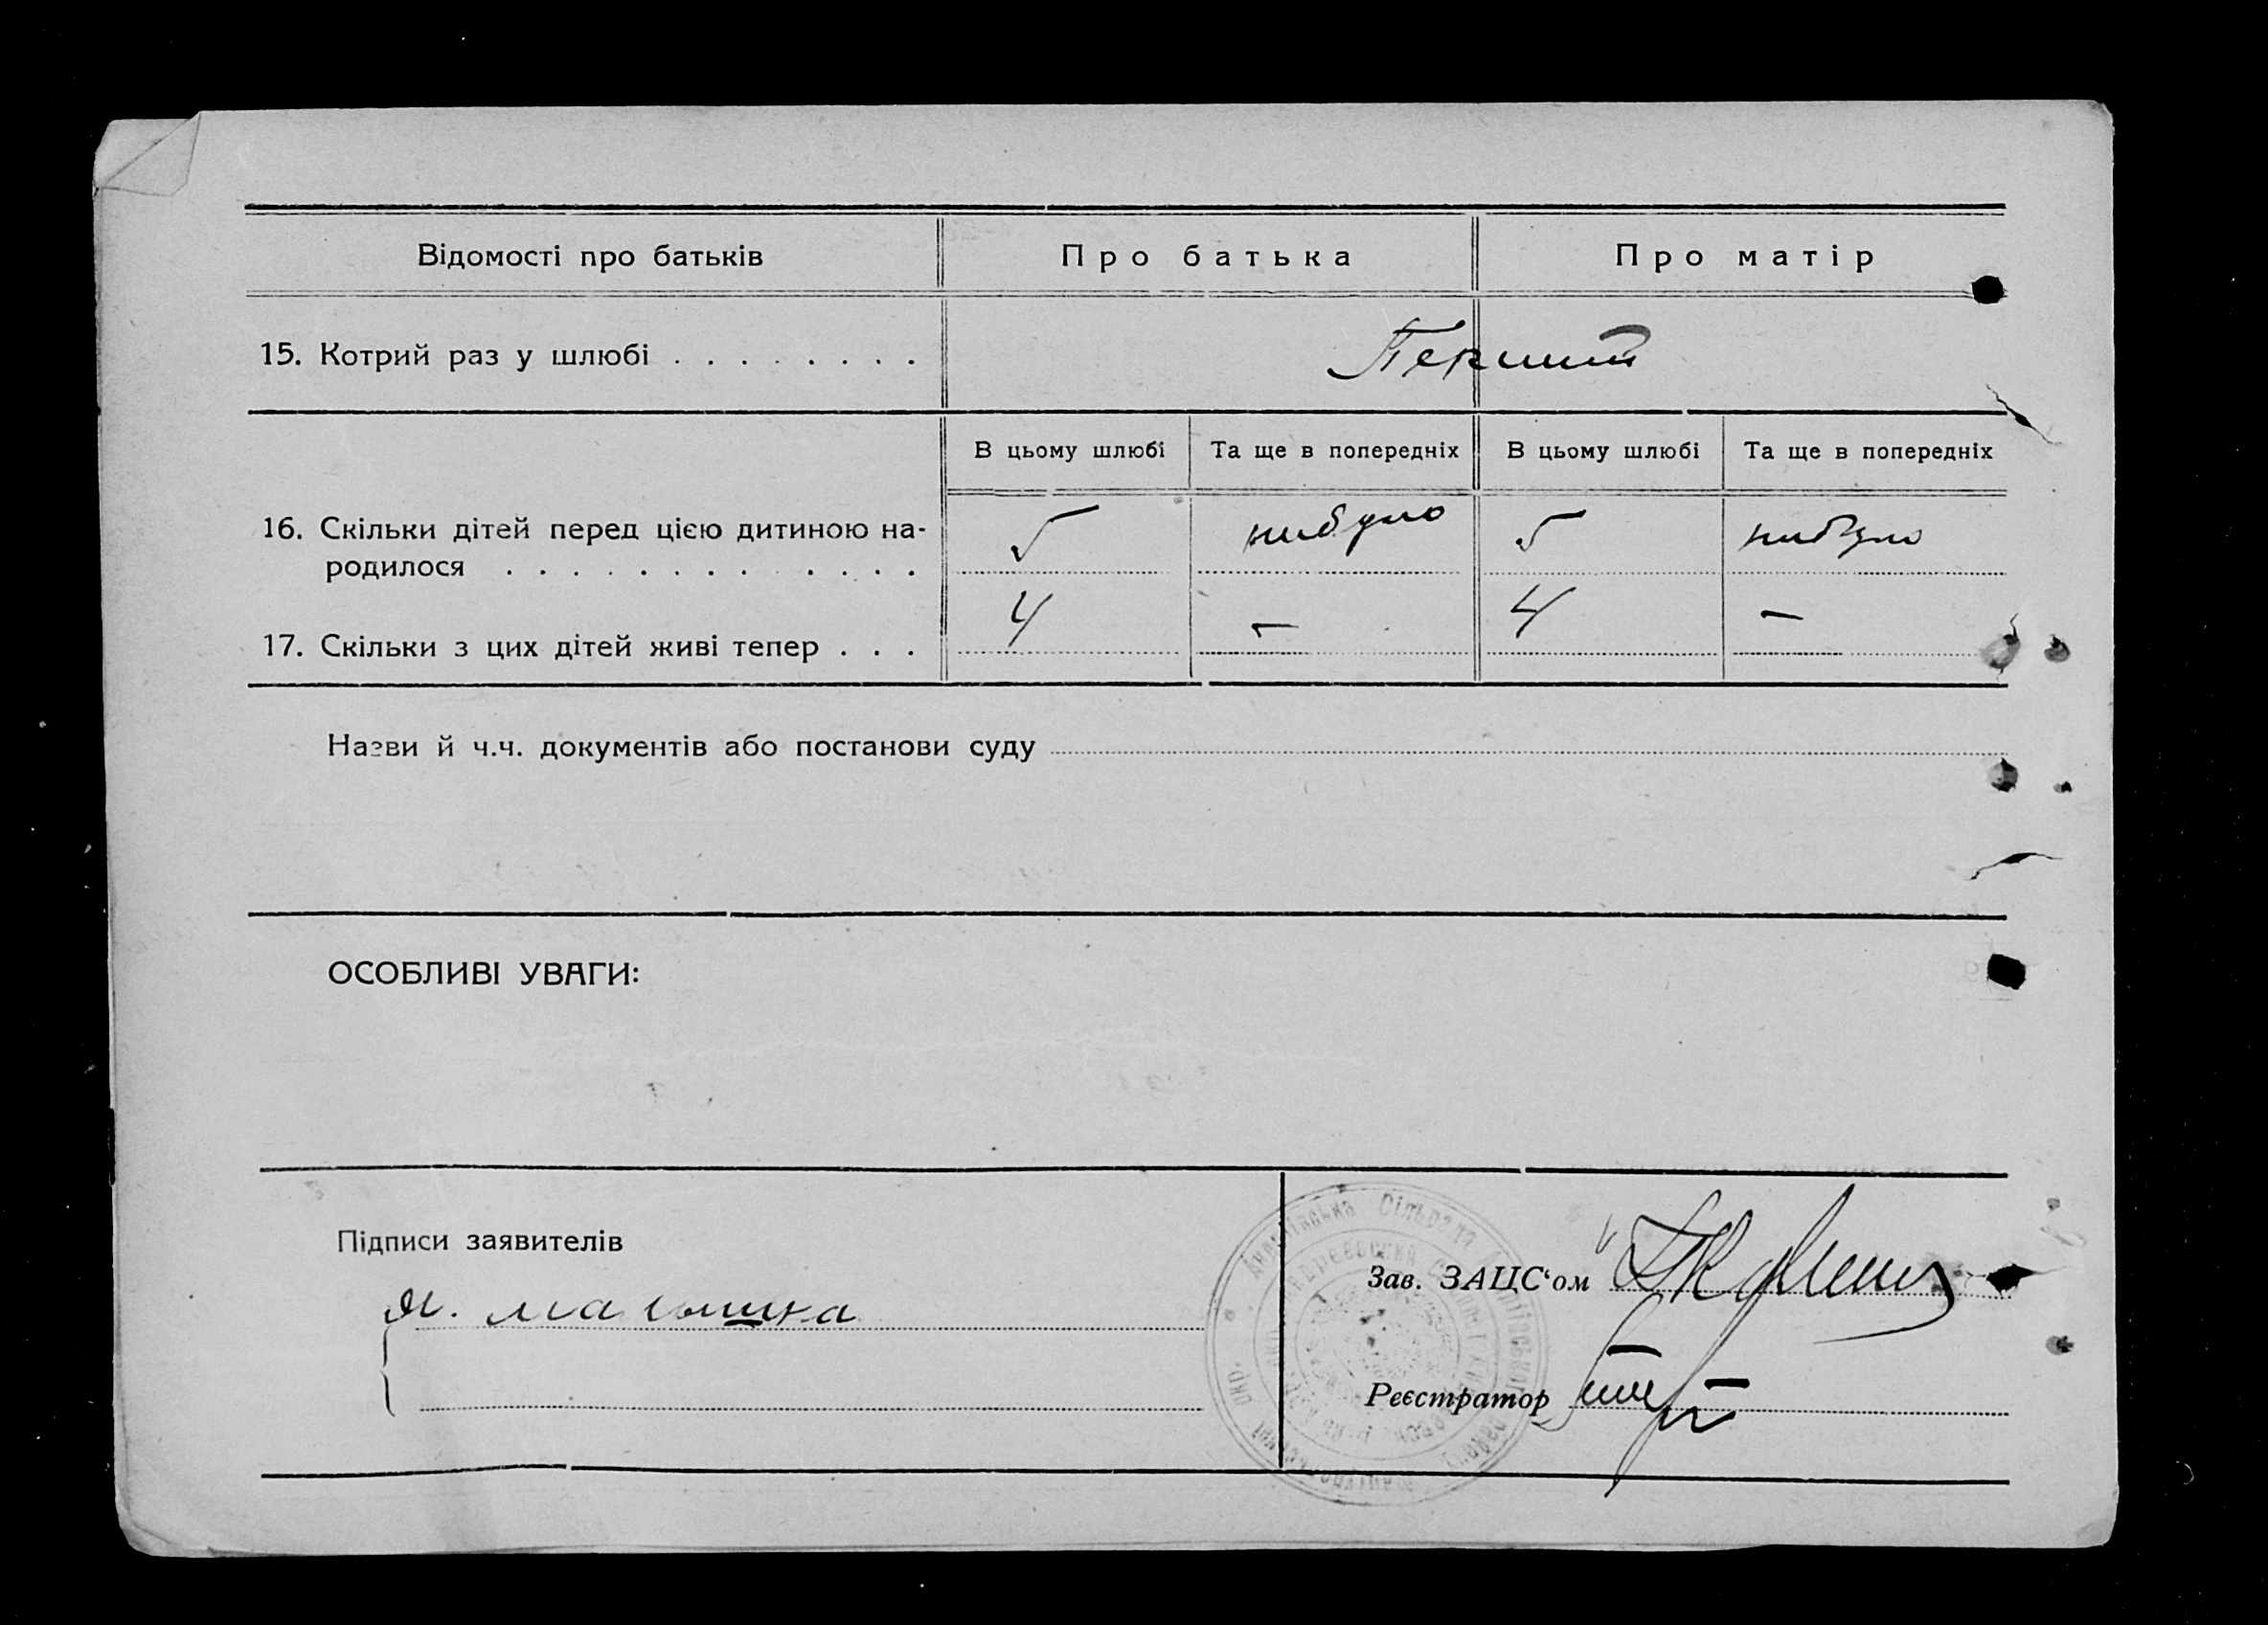 Відомості про батьків
Про батька
Про матір
15. Котрий раз у шлюбі . . . . . . . .
Перший
В цьому шлюбі
Та ще в попередніх
В цьому шлюбі
Та ще в попередніх
16. Скільки дітей перед цією дитиною на-
родилося . . . . . . . . . . . .
5
небуло
5
небуло
17. Скільки з цих дітей живі тепер . . .
4
—
4
—
Назви й ч.ч. документів або постанови суду
ОСОБЛИВІ УВАГИ:
Підписи заявителів
Зав. ЗАЦС‘ом
Реєстратор